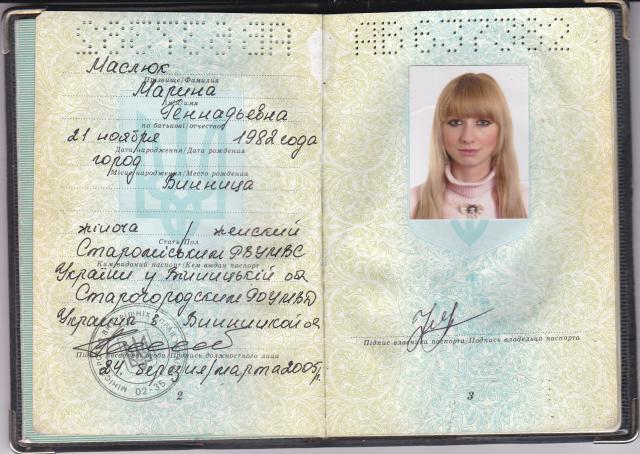 Маслюк
Прізвище/Фамилия
Марина
Ім'я/имя
Геннадьевна
по батькові/отчество
21 ноября 1982 года
Дата народження/Дата рождения
город
Місце народження/Место рождения
Винница
жіноча / женский
Стать/Пол
Староміським РВУМВС
Ким виданий паспорт/Кем выдан паспорт
України у Вінницькій об
Старогородским РОУМВД
Украины в Винницкой об
Підпис посадової особи/Подпись должностного лица
24 березня/марта 2005р.
02-35
2
АВ 637382
Підпис власника паспорта/Подпись владельца паспорта
3